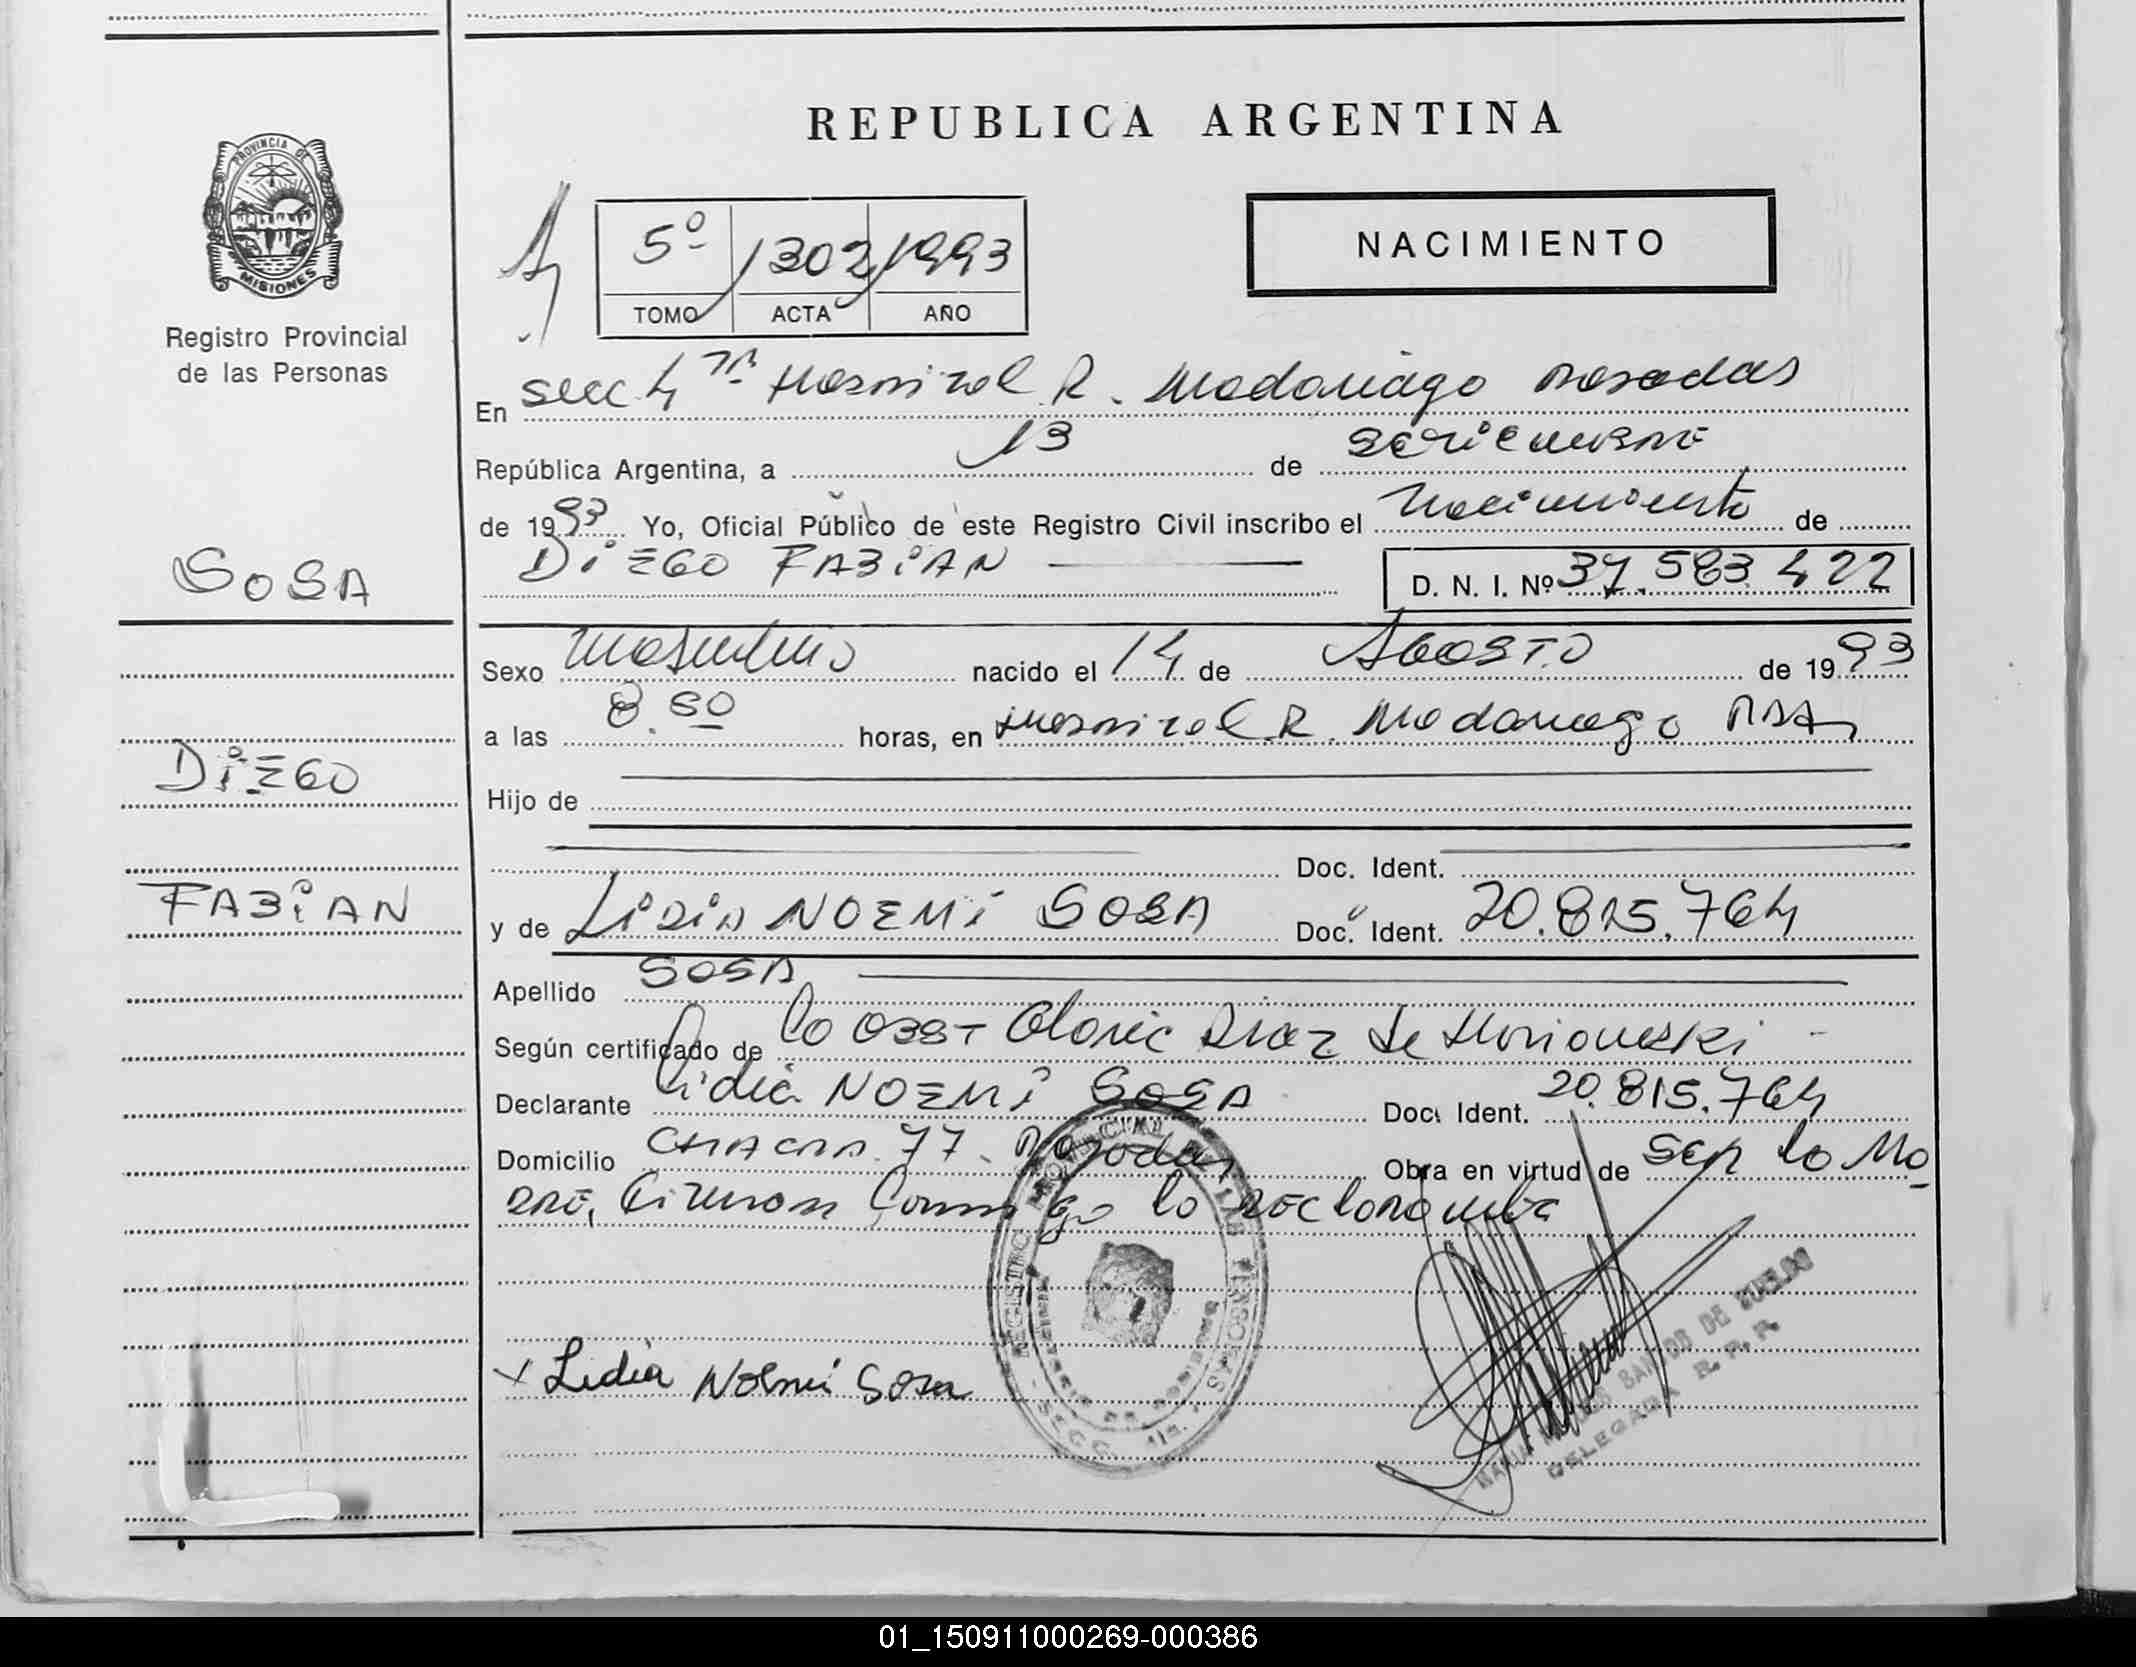 REPUBLICA ARGENTINA
PROVINCIA DE
MISIONES
Registro Provincial
de las Personas
5º 1302 1993
TOMO ACTA AÑO
NACIMIENTO
En Secc 4ta Hospital R. Madariaga Posadas
República Argentina, a 13 de SETIEMBRE
de 1993 Yo, Oficial Público de este Registro Civil inscribo el Nacimiento de
DiEGO FABiAN D. N. I. Nº 37.583.422
SOSA
DiEGO
FABiAN
Sexo Masculino nacido el 14 de AGOSTO de 1993
a las 8.50 horas, en Hospital R. Madariaga
Hijo de
Doc. Ident.
y de LiDiA NOEMi SOSA Doc. Ident. 20.815.764
Apellido SOSA
Según certificado de la OBST Gloria Diaz de
Declarante Lidia NOEMi SOSA Doc. Ident. 20.815.764
Domicilio CHACRA 77. Posadas Obra en virtud de SER la MA
DRE, Firman Conmigo la Declarante
REGISTRO PROVINCIAL DE LAS PERSONAS
x Lidia Noemí Sosa
SANTOS DE
DELEGADA R. P. P.
01_150911000269-000386